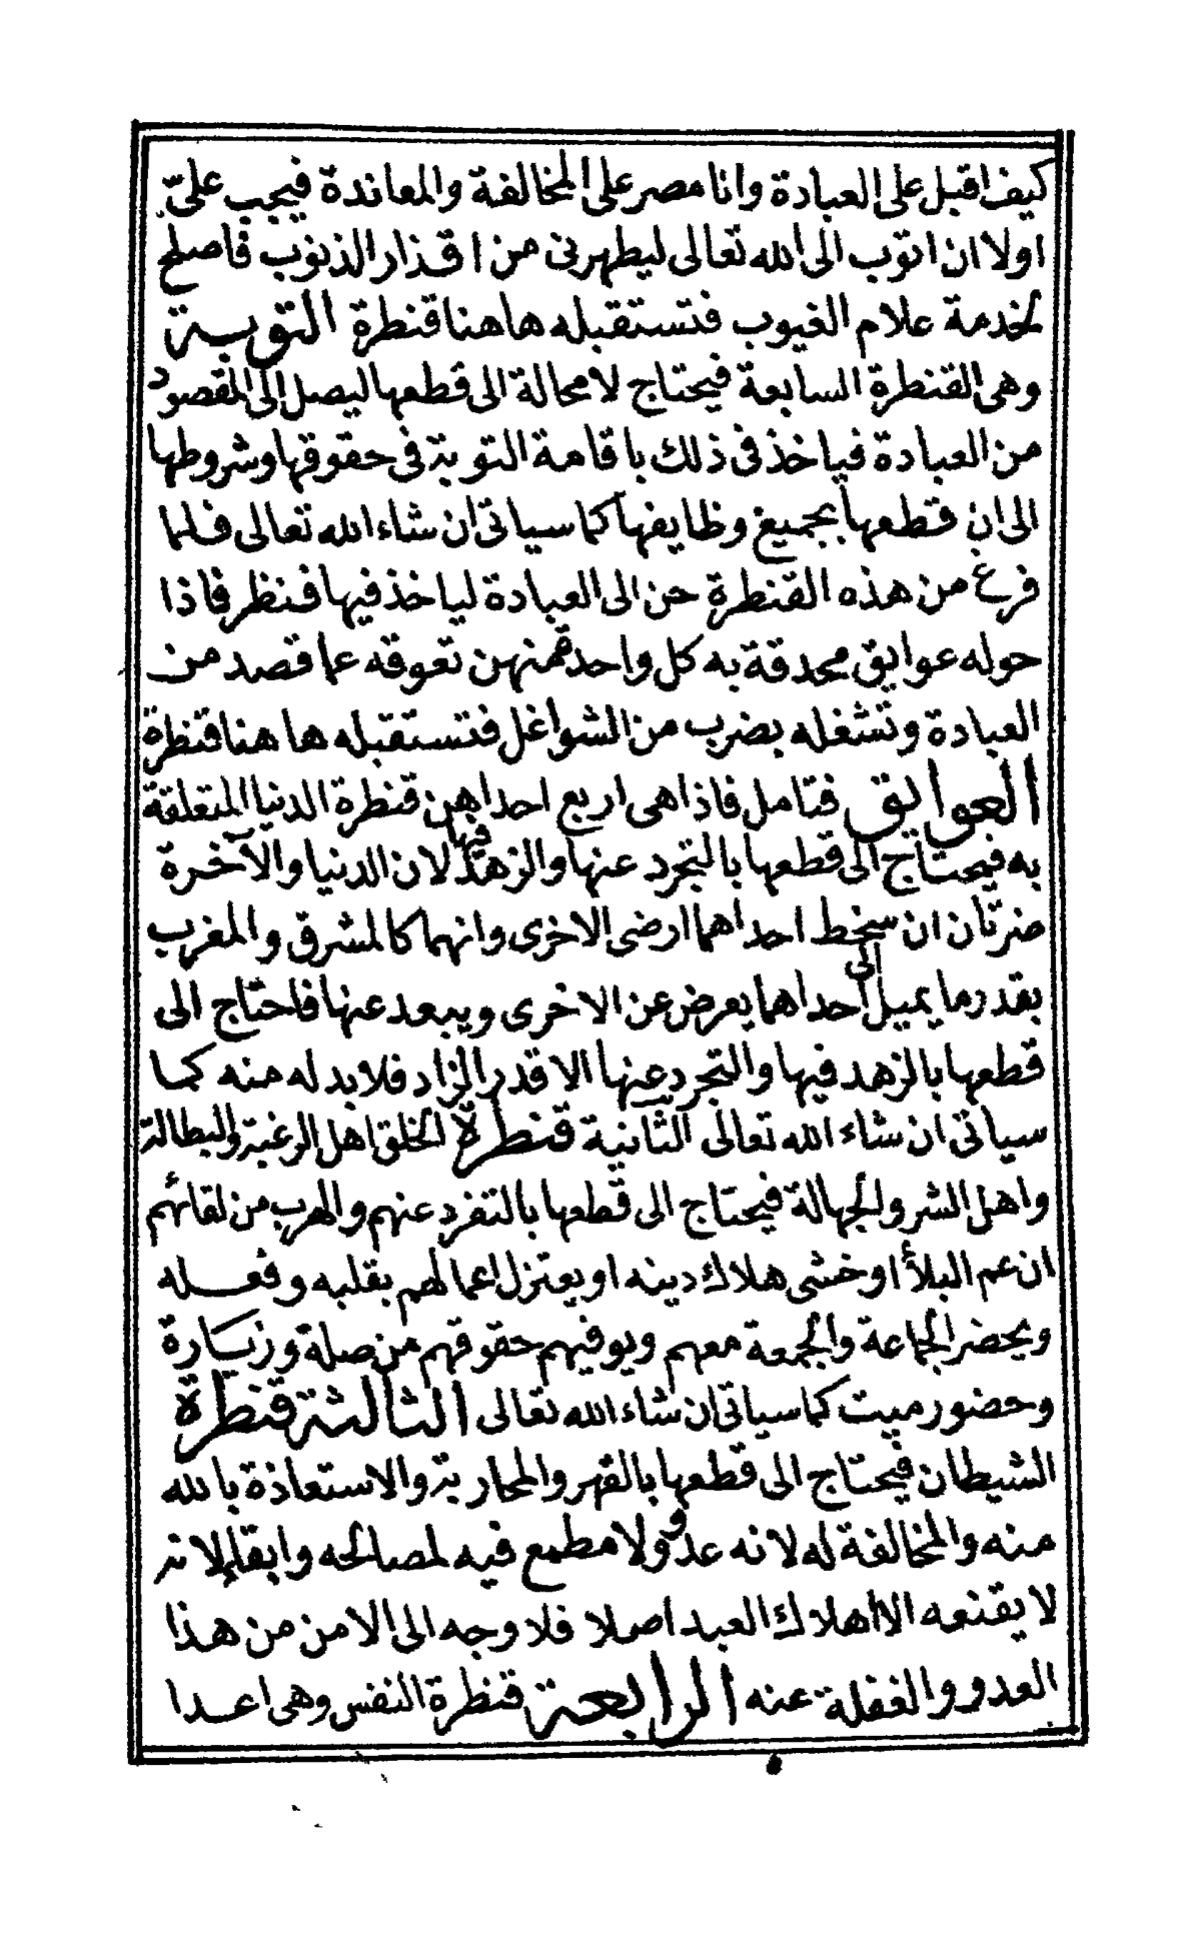 كيف اقبل على العبادة وانا مصر على المخالفة والمعاندة فيجب علىّ
اولا ان اتوب الى الله تعالى ليطهرنى من اقذار الذنوب فاصلح
لخدمة علام الغيوب فتستقبله هاهنا قنطرة التوبة
وهى القنطرة السابعة فيحتاج لا محالة الى قطعها ليصل الى المقصود
من العبادة فياخذ فى ذلك باقامة التوبة فى حقوقها وشروطها
الى ان قطعها بجميع وظايفها كما سياتى ان شاء الله تعالى فلما
فرغ من هذه القنطرة حن الى العبادة لياخذ فيها فنظر فاذا
حوله عوايق محدقة به كل واحدة منهن تعوقه عما قصد من
العبادة وتشغله بضرب من الشواغل فتستقبله ها هنا قنطرة
العوايق فتامل فاذا هى اربع احداهن قنطرة الدنيا المتعلقة
به فيحتاج الى قطعها بالتجرد عنها والزهد فيها لان الدنيا والآخرة
ضرتان ان سخط احداهما ارضى الاخرى وانهما كالمشرق والمغرب
بقدر ما يميل الى احداهما يعرض عن الاخرى ويبعد عنها فاحتاج الى
قطعها بالزهد فيها والتجرد عنها الا قدر الزاد فلا بد له منه كما
سياتى ان شاء الله تعالى الثانية قنطرة الخلق اهل الرغبة والبطالة
واهل الشر والجهالة فيحتاج الى قطعها بالتفرد عنهم والهرب من لقائهم
ان عم البلأ او خشى هلاك دينه او يعتزل اعمالهم بقلبه وفعله
ويحضر الجماعة والجمعة معهم ويوفيهم حقوقهم من صلة وزيارة
وحضور ميت كما سياتى ان شاء الله تعالى الثالثة قنطرة
الشيطان فيحتاج الى قطعها بالقهر والمحاربة والاستعاذة بالله
منه والمخالفة له لانه عدو ولا مطمع فيه لمصالحه وابقا لانه
لا يقنعه الا اهلاك العبد اصلا فلا وجه الى الامن من هذا
العدو والغفلة عنه الرابعة قنطرة النفس وهى اعدا